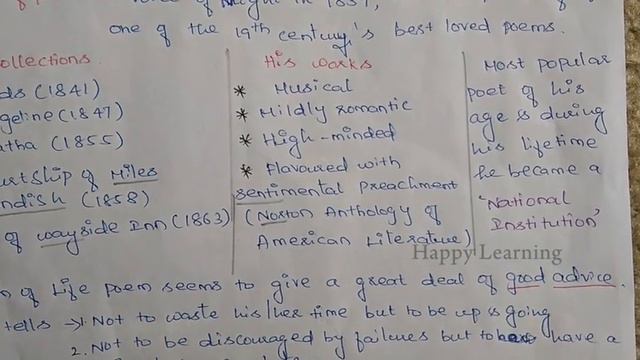 one of the 19th century's best loved poems.
ollections
ds (1841)
geline (1847)
atha (1855)
urtship of Miles
ndish (1858)
of wayside Inn (1863)
His works
* Musical
* Mildly romantic
* High-minded
* Flavoured with
sentimental Preachment
(Norton Anthology of
American Literature)
Most popular
poet of his
age & during
his lifetime
he became a
'National
Institution'
Happy Learning
of Life poem seems to give a great deal of good advice.
tells → 1. Not to waste his/her time but to be up & going
2. Not to be discouraged by failures but to have a